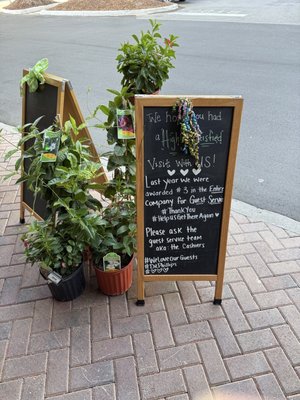 We hope you had
a Highly Satisfied
Visit With US!
Last year we were
awarded #3 in the Entire
Company for Guest Serve
#ThankYou
#HelpusGetThereAgain
Please ask the
guest service team
aka the Cashiers
#WeLoveourGuests